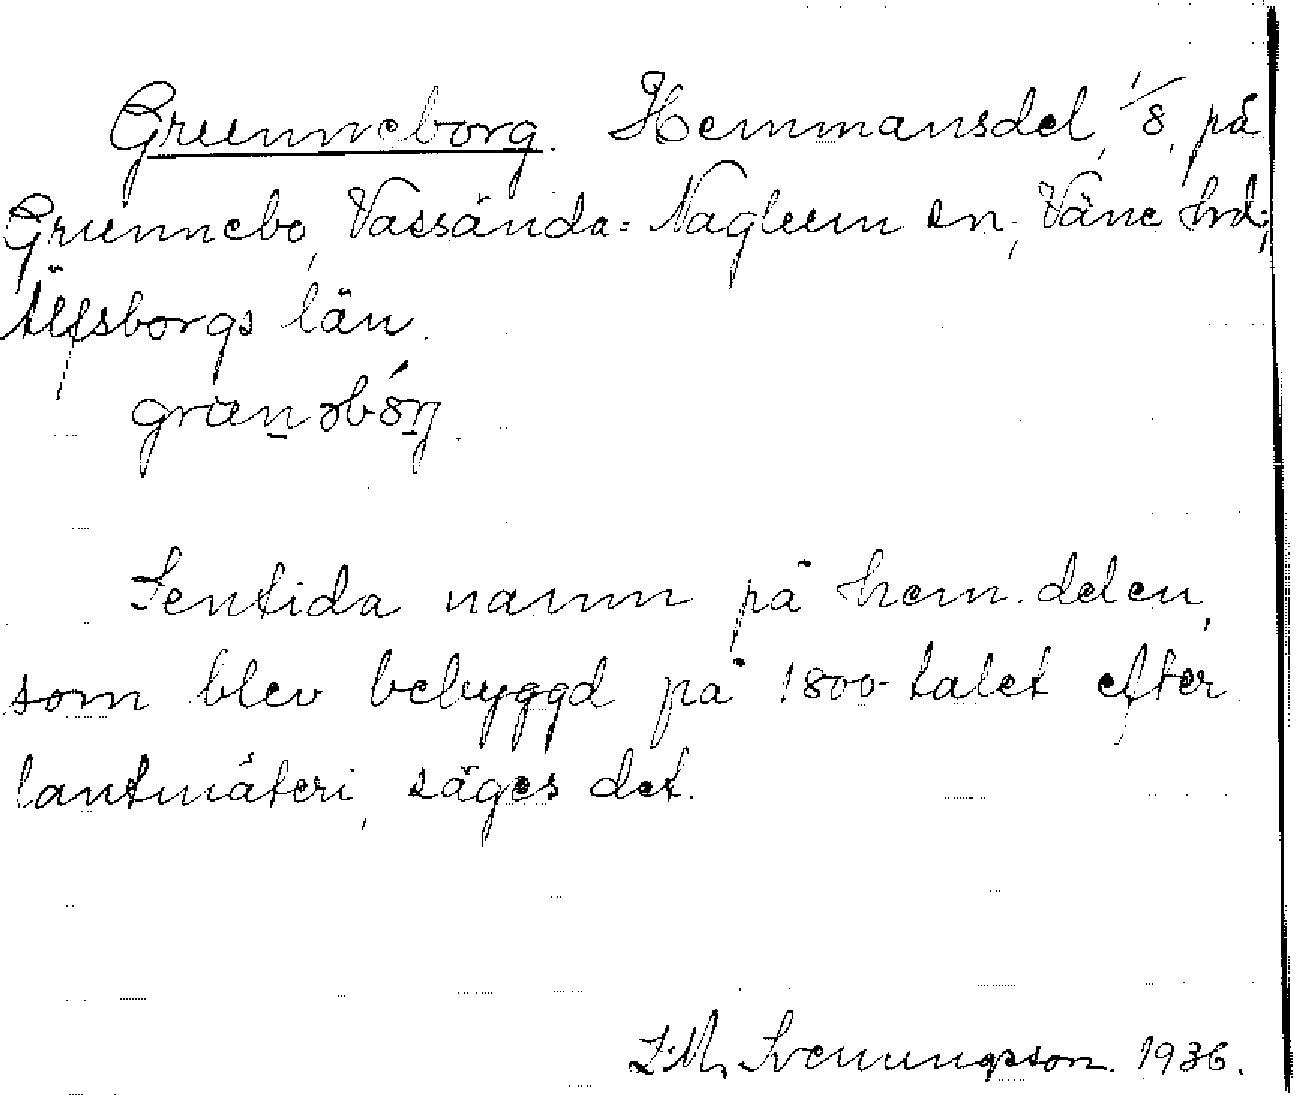 Grunneborg. Hemmansdel, 1/8, på
Grunnebo, Vassända-Naglum sn, Väne hd,
Älfsborgs län.
Sentida namn på hem.delen,
som blev bebyggd på 1800-talet efter
lantmäteri, säges det.
J.M. Svenungsson. 1936.